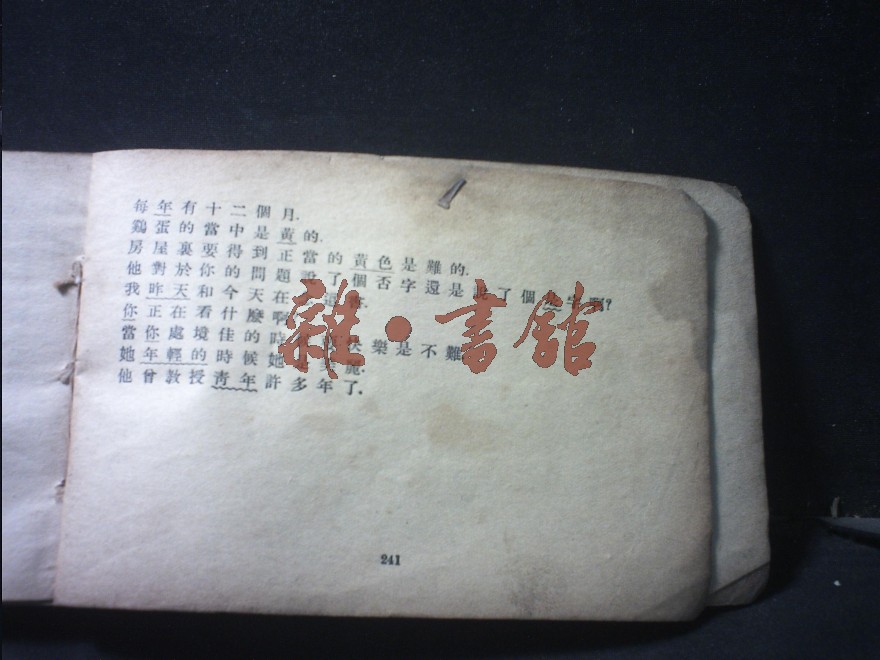 每年有十二個月.
鷄蛋的當中是黃的.
房屋裏要得到正當的黃色是難的.
他對於你的問題說了個否字還是說了個是字啊?
我昨天和今天在
你正在看什麼啊
當你處境佳的時 樂是不難
她年輕的時候她 麗.
他曾教授靑年許多年了.
雜·書館
241